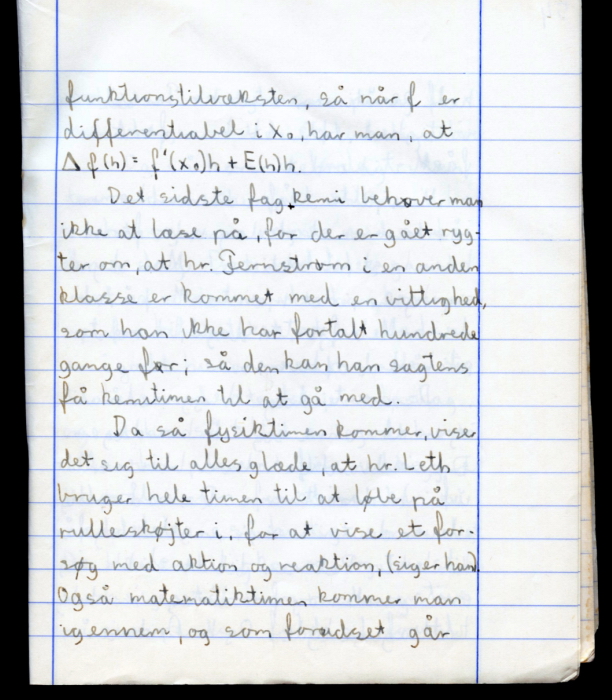 funktionstilvæksten, så når f er
differentiabel i x₀, har man, at
Δf(h) = f'(x₀)h + E(h)h.
Det sidste fag, kemi behøver man
ikke at læse på, for der er gået ryg-
ter om, at hr. Fernstrøm i en anden
klasse er kommet med en vittighed,
som han ikke har fortalt hundrede
gange før; så den kan han sagtens
få kemitimen til at gå med.
Da så fysiktimen kommer, viser
det sig til alles glæde, at hr. Leth
bruger hele timen til at løbe på
rulleskøjter i, for at vise et for-
søg med aktion og reaktion, (siger han).
Også matematiktimen kommer man
igennem, og som forudset går